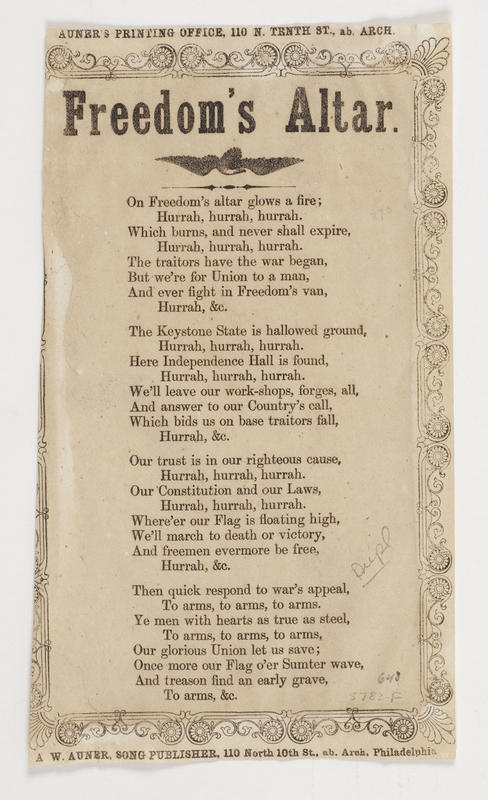 AUNER'S PRINTING OFFICE, 110 N. TENTH ST., ab. ARCH.
Freedom's Altar.
On Freedom's altar glows a fire;
Hurrah, hurrah, hurrah.
Which burns, and never shall expire,
Hurrah, hurrah, hurrah.
The traitors have the war began,
But we're for Union to a man,
And ever fight in Freedom's van,
Hurrah, &c.
The Keystone State is hallowed ground,
Hurrah, hurrah, hurrah.
Here Independence Hall is found,
Hurrah, hurrah, hurrah.
We'll leave our work-shops, forges, all,
And answer to our Country's call,
Which bids us on base traitors fall,
Hurrah, &c.
Our trust is in our righteous cause,
Hurrah, hurrah, hurrah.
Our Constitution and our Laws,
Hurrah, hurrah, hurrah.
Where'er our Flag is floating high,
We'll march to death or victory,
And freemen evermore be free,
Hurrah, &c.
Dupl
Then quick respond to war's appeal,
To arms, to arms, to arms.
Ye men with hearts as true as steel,
To arms, to arms, to arms,
Our glorious Union let us save;
Once more our Flag o'er Sumter wave,
And treason find an early grave,
640
To arms, &c.
5782-F
A. W. AUNER, SONG PUBLISHER, 110 North 10th St., ab. Arch, Philadelphia